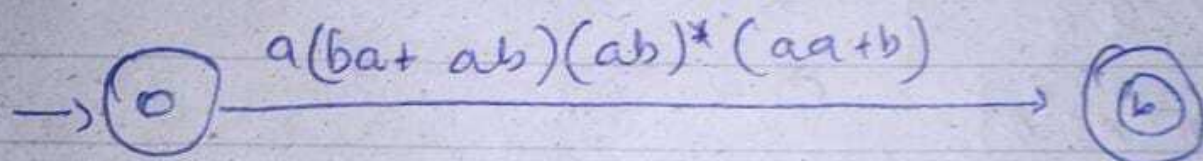 a(ba+ ab)(ab)* (aa+b)
0